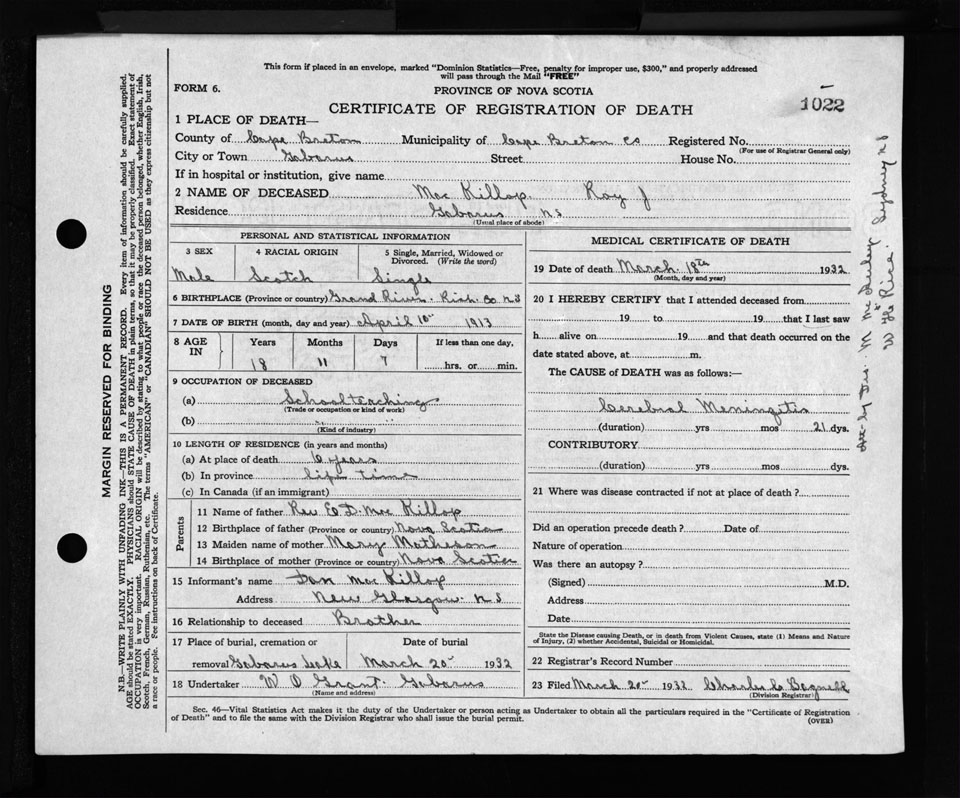 This form if placed in an envelope, marked "Dominion Statistics—Free, penalty for improper use, $300," and properly addressed
will pass through the Mail "FREE"
FORM 6.
PROVINCE OF NOVA SCOTIA
CERTIFICATE OF REGISTRATION OF DEATH
1022
1 PLACE OF DEATH—
County of Cape Breton Municipality of Cape Breton Co Registered No.
(For use of Registrar General only)
City or Town Gabarus Street House No.
If in hospital or institution, give name
2 NAME OF DECEASED Mac Killop Roy J
Residence Gabarus N S
(Usual place of abode)
PERSONAL AND STATISTICAL INFORMATION
3 SEX 4 RACIAL ORIGIN 5 Single, Married, Widowed or
Divorced. (Write the word)
Male Scotch Single
6 BIRTHPLACE (Province or country) Grand River. Rich. Co. N S
7 DATE OF BIRTH (month, day and year) April 10 1913
8 AGE IN Years Months Days If less than one day,
18 11 7 hrs. or min.
9 OCCUPATION OF DECEASED
(a) Schoolteaching
(Trade or occupation or kind of work)
(b)
(Kind of industry)
10 LENGTH OF RESIDENCE (in years and months)
(a) At place of death 6 years
(b) In province life time
(c) In Canada (if an immigrant)
Parents
11 Name of father Rev E. D. Mac Killop
12 Birthplace of father (Province or country) Nova Scotia
13 Maiden name of mother Mary Matheson
14 Birthplace of mother (Province or country) Nova Scotia
15 Informant's name Dan Mac Killop
Address New Glasgow N S
16 Relationship to deceased Brother
17 Place of burial, cremation or Date of burial
removal Gabarus Lake March 20 1932
18 Undertaker W O Grant. Gabarus
(Name and address)
MEDICAL CERTIFICATE OF DEATH
19 Date of death March 18th 1932
(Month, day and year)
20 I HEREBY CERTIFY that I attended deceased from
19 to 19 that I last saw
h alive on 19 and that death occurred on the
date stated above, at m.
The CAUSE of DEATH was as follows:—
Cerebral Meningitis
(duration) yrs mos 21 dys.
CONTRIBUTORY
(duration) yrs mos dys.
21 Where was disease contracted if not at place of death?
Did an operation precede death? Date of
Nature of operation
Was there an autopsy?
(Signed) M.D.
Address
Date
State the Disease causing Death, or in death from Violent Causes, state (1) Means and Nature
of Injury, (2) whether Accidental, Suicidal or Homicidal.
22 Registrar's Record Number
23 Filed March 20 1932 Charles C Bagnell
(Division Registrar)
Sec. 46—Vital Statistics Act makes it the duty of the Undertaker or person acting as Undertaker to obtain all the particulars required in the "Certificate of Registration
of Death" and to file the same with the Division Registrar who shall issue the burial permit.
(OVER)
MARGIN RESERVED FOR BINDING
N.B.—WRITE PLAINLY WITH UNFADING INK—THIS IS A PERMANENT RECORD. Every item of information should be carefully supplied.
AGE should be stated EXACTLY. PHYSICIANS should STATE CAUSE OF DEATH in plain terms, so that it may be properly classified. Exact statement of
OCCUPATION is very important. RACIAL ORIGIN will be described by stating to what people or race the deceased person belonged, whether English, Irish,
Scotch, French, German, Russian, Ruthenian, etc. The terms "AMERICAN" or "CANADIAN" SHOULD NOT BE USED as they express citizenship but not
a race or people. See instructions on back of Certificate.
by Drs. M
& W Rice. Sydney N S